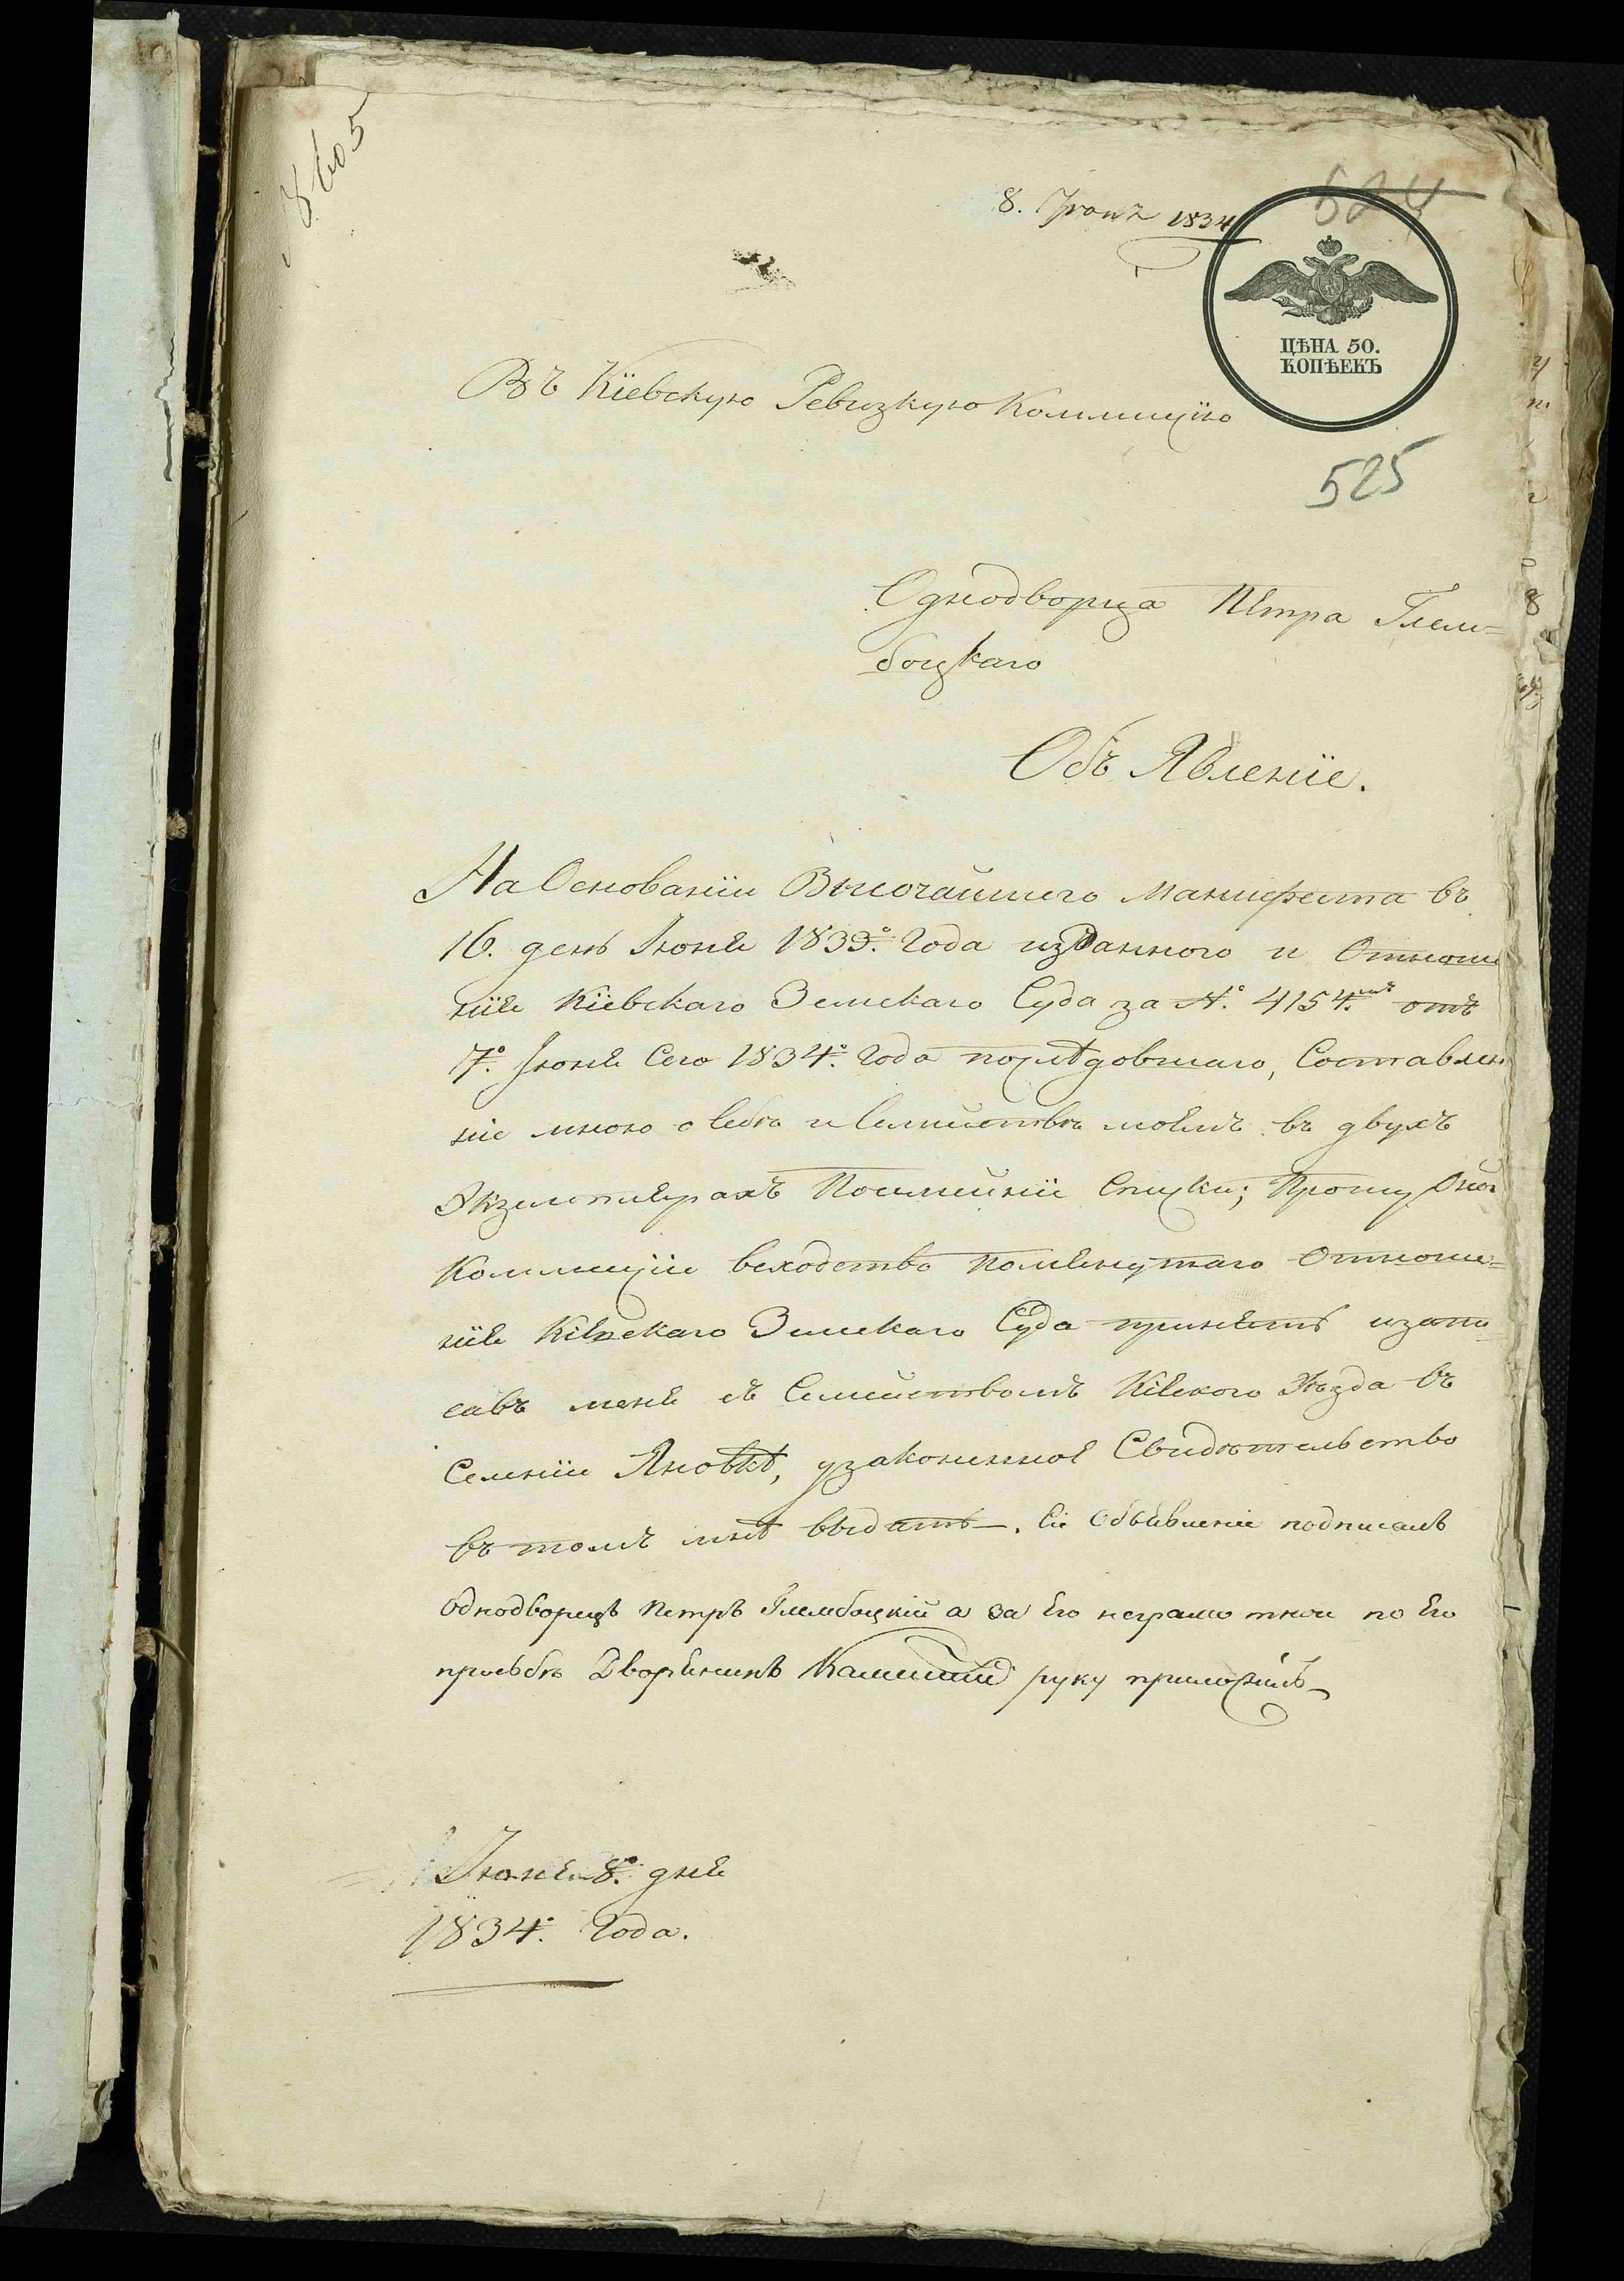 8605
8. Іюня 1834
524
ЦѢНА 50.
КОПѢЕКЪ
Въ Кіевскую Ревизкую Коммицію
525
Однодворца Петра Глем=
боцкаго
Объ Явленіе.
На Основаніи Высочайшего Манифеста въ
16. день Іюня 1833º. Года изданного и Отноше
ніе Кіевскаго Земскаго Суда за №. 4154.мъ отъ
7º. Іюня Сего 1834º. Года послѣдовшаго, Составлен
ніе мною о себѣ и Семпствѣ моемъ въ двухъ
Экземплярахъ Посимейніе Спуки; Прошу Оной
Коммиціи всходство Помянутаго Отноше=
ніе Кіевскаго Земскаго Суда принять изапи
савъ меня съ Семействомъ Кіевского Уѣзда въ
Селеніи Яновкѣ, узаконенное Свидѣтельство
въ томъ мнѣ выдать. Сіе Объявленіе подписалъ
однодворецъ Петръ Глембоцкій а за Его неграмотност по Его
прозьбѣ Дворянинъ руку приложилъ
Іюня 8º. дня
1834º. Года.